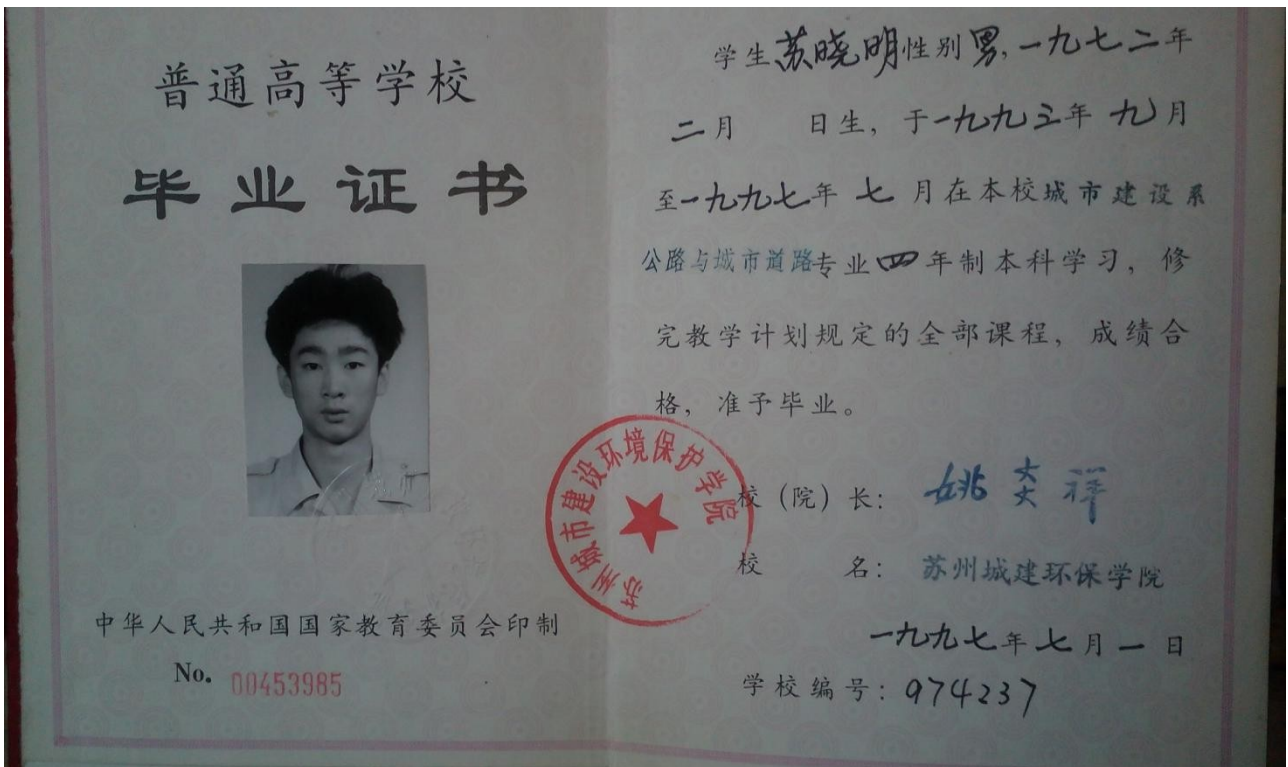 普通高等学校
毕业证书
中华人民共和国国家教育委员会印制
No. 00453985
学生苏晓明性别男,一九七二年
二月 日生，于一九九三年九月
至一九九七年七月在本校城市建设系
公路与城市道路专业四年制本科学习，修
完教学计划规定的全部课程，成绩合
格，准予毕业。
苏州城市建设环境保护学院
校（院）长：姚炎祥
校 名：苏州城建环保学院
一九九七年七月一日
学校编号：974237